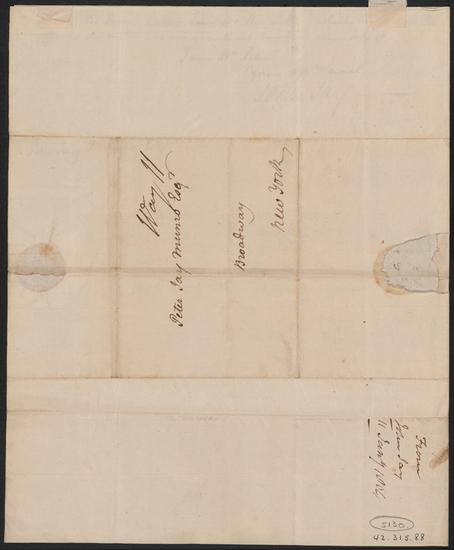 Way 11
Peter Jay Munro Esqr
Broadway
New York
From
John Jay
11 Jany
5130
42.315.88